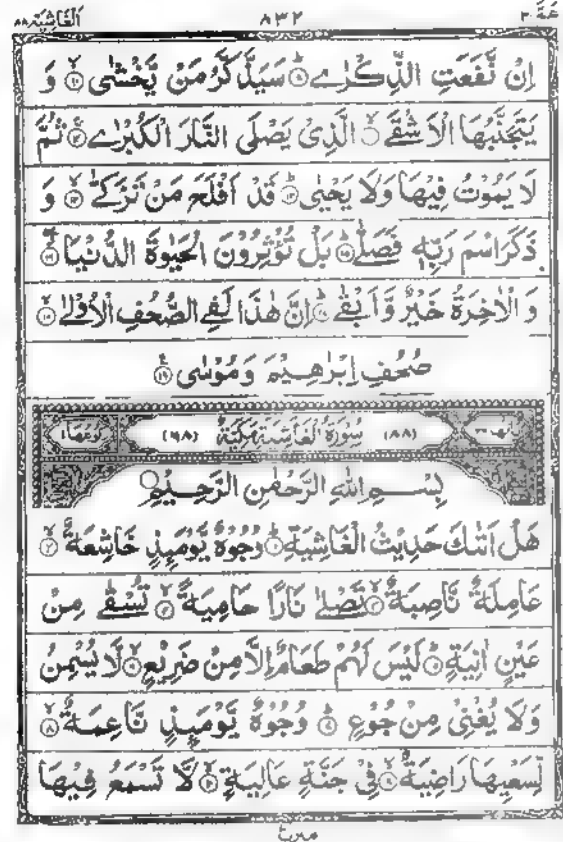 الغاشية ٨٨ ٨٣٢ عمّ ٣٠
اِنْ نَّفَعَتِ الذِّكْرٰى ۝٩ سَيَذَّكَّرُ مَنْ يَّخْشٰى ۝١٠ وَ
يَتَجَنَّبُهَا الْاَشْقَى ۝١١ الَّذِىْ يَصْلَى النَّارَ الْكُبْرٰى ۝١٢ ثُمَّ
لَا يَمُوْتُ فِيْهَا وَلَا يَحْيٰى ۝١٣ قَدْ اَفْلَحَ مَنْ تَزَكّٰى ۝١٤ وَ
ذَكَرَ اسْمَ رَبِّهٖ فَصَلّٰى ۝١٥ بَلْ تُؤْثِرُوْنَ الْحَيٰوةَ الدُّنْيَا ۝١٦
وَ الْاٰخِرَةُ خَيْرٌ وَّ اَبْقٰى ۝١٧ اِنَّ هٰذَا لَفِى الصُّحُفِ الْاُوْلٰى ۝١٨
صُحُفِ اِبْرٰهِيْمَ وَمُوْسٰى ۝١٩
(٨٨) سُوْرَةُ الْغَاشِيَةِ مَكِّيَّةٌ (٦٨)
بِسْمِ اللهِ الرَّحْمٰنِ الرَّحِيْمِ
هَلْ اَتٰىكَ حَدِيْثُ الْغَاشِيَةِ ۝١ وُجُوْهٌ يَّوْمَئِذٍ خَاشِعَةٌ ۝٢
عَامِلَةٌ نَّاصِبَةٌ ۝٣ تَصْلٰى نَارًا حَامِيَةً ۝٤ تُسْقٰى مِنْ
عَيْنٍ اٰنِيَةٍ ۝٥ لَيْسَ لَهُمْ طَعَامٌ اِلَّا مِنْ ضَرِيْعٍ ۝٦ لَّا يُسْمِنُ
وَلَا يُغْنِىْ مِنْ جُوْعٍ ۝٧ وُجُوْهٌ يَّوْمَئِذٍ نَّاعِمَةٌ ۝٨
لِّسَعْيِهَا رَاضِيَةٌ ۝٩ فِىْ جَنَّةٍ عَالِيَةٍ ۝١٠ لَّا تَسْمَعُ فِيْهَا